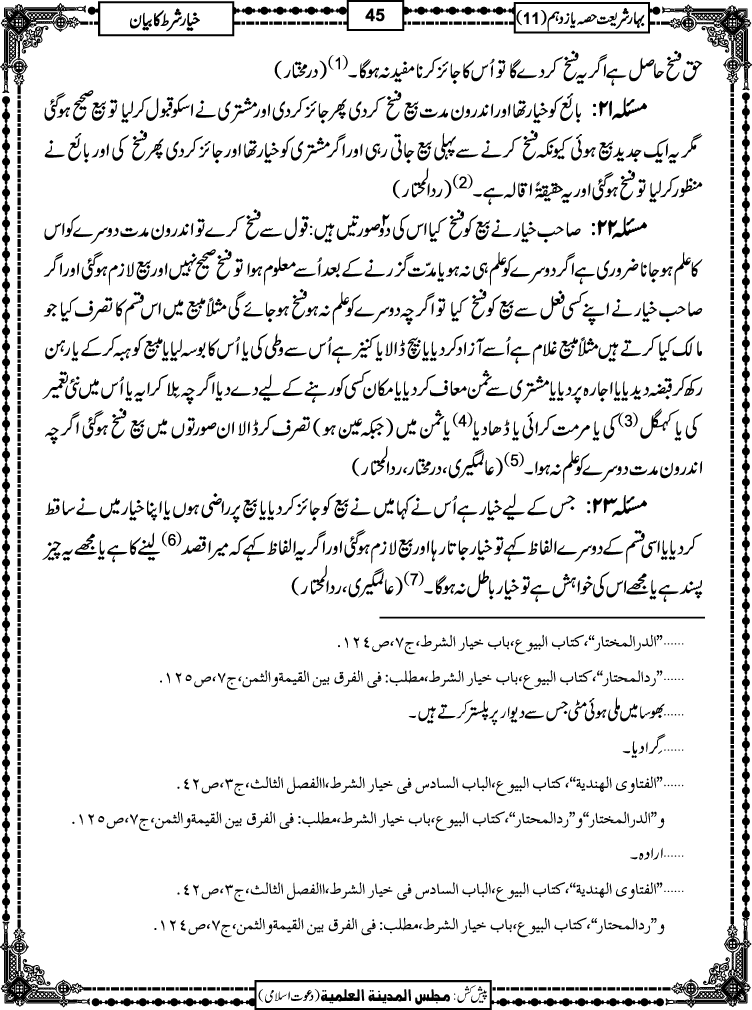 بہارِ شریعت حصہ یازدہم (11)
45
خیار شرط کا بیان
حق فسخ حاصل ہے اگر یہ فسخ کردے گا تو اُس کا جائز کرنا مفید نہ ہوگا۔(1) (درمختار)
مسئلہ ۲۱: بائع کو خیار تھا اور اندرون مدت بیع فسخ کردی پھر جائز کردی اور مشتری نے اسکو قبول کرلیا تو بیع صحیح ہوگئی
مگر یہ ایک جدید بیع ہوئی کیونکہ فسخ کرنے سے پہلی بیع جاتی رہی اور اگر مشتری کو خیار تھا اور جائز کردی پھر فسخ کی اور بائع نے
منظور کرلیا تو فسخ ہوگئی اور یہ حقیقۃً اقالہ ہے۔(2) (ردالمحتار)
مسئلہ ۲۲: صاحب خیار نے بیع کو فسخ کیا اس کی دو صورتیں ہیں: قول سے فسخ کرے تو اندرون مدت دوسرے کو اس
کا علم ہوجانا ضروری ہے اگر دوسرے کو علم ہی نہ ہو یا مدّت گزرنے کے بعد اُسے معلوم ہوا تو فسخ صحیح نہیں اور بیع لازم ہوگئی اور اگر
صاحب خیار نے اپنے کسی فعل سے بیع کو فسخ کیا تو اگرچہ دوسرے کو علم نہ ہو فسخ ہوجائے گی مثلاً مبیع میں اس قسم کا تصرف کیا جو
مالک کیا کرتے ہیں مثلاً مبیع غلام ہے اُسے آزاد کردیا یا بیچ ڈالا یا کنیز ہے اُس سے وطی کی یا اُس کا بوسہ لیا یا مبیع کو ہبہ کرکے یا رہن
رکھ کر قبضہ دیدیا یا اجارہ پر دیا یا مشتری سے ثمن معاف کردیا یا مکان کسی کو رہنے کے لیے دے دیا اگرچہ بِلا کرایہ یا اُس میں نئی تعمیر
کی یا کہگل (3) کی یا مرمت کرائی یا ڈھادیا (4) یا ثمن میں (جبکہ عین ہو) تصرف کرڈالا ان صورتوں میں بیع فسخ ہوگئی اگرچہ
اندرون مدت دوسرے کو علم نہ ہوا۔(5) (عالمگیری، درمختار، ردالمحتار)
مسئلہ ۲۳: جس کے لیے خیار ہے اُس نے کہا میں نے بیع کو جائز کردیا یا بیع پر راضی ہوں یا اپنا خیار میں نے ساقط
کردیا یا اسی قسم کے دوسرے الفاظ کہے تو خیار جاتا رہا اور بیع لازم ہوگئی اور اگر یہ الفاظ کہے کہ میرا قصد (6) لینے کا ہے یا مجھے یہ چیز
پسند ہے یا مجھے اس کی خواہش ہے تو خیار باطل نہ ہوگا۔(7) (عالمگیری، ردالمحتار)
......”الدرالمختار“،كتاب البيوع،باب خيار الشرط،ج٧،ص١٢٤.
......”ردالمحتار“،كتاب البيوع،باب خيار الشرط،مطلب: فى الفرق بين القيمةوالثمن،ج٧،ص١٢٥.
......بھوسا میں ملی ہوئی مٹی جس سے دیوار پر پلستر کرتے ہیں۔
......گِرادیا۔
......”الفتاوى الهندية“،كتاب البيوع،الباب السادس فى خيار الشرط،االفصل الثالث،ج٣،ص٤٢.
و”الدرالمختار“و”ردالمحتار“،كتاب البيوع،باب خيار الشرط،مطلب: فى الفرق بين القيمةوالثمن،ج٧،ص١٢٥.
......ارادہ۔
......”الفتاوى الهندية“،كتاب البيوع،الباب السادس فى خيار الشرط،االفصل الثالث،ج٣،ص٤٢.
و”ردالمحتار“،كتاب البيوع،باب خيار الشرط،مطلب: فى الفرق بين القيمةوالثمن،ج٧،ص١٢٤.
پیش کش: مجلس المدینۃ العلمیۃ (دعوت اسلامی)